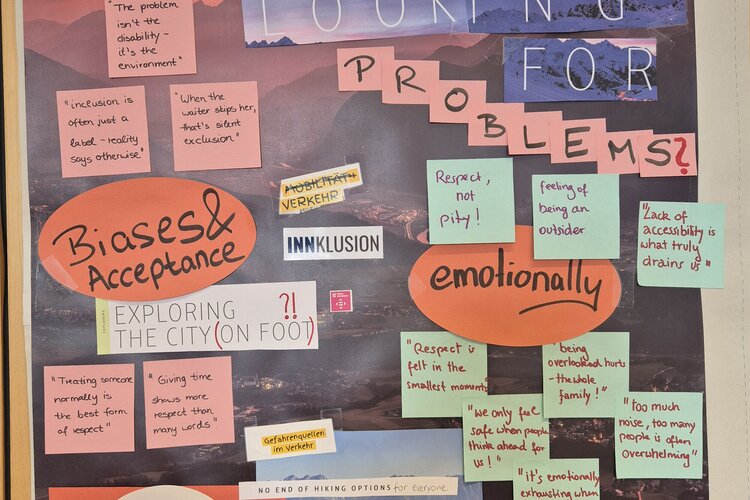 "The problem
isn't the
disability -
it's the
environment"
LOOKING
FOR
PROBLEMS?
"inclusion is
often just a
label - reality
says otherwise"
"When the
waiter skips her,
that's silent
exclusion"
MOBILITÄT +
VERKEHR
INNKLUSION
Biases &
Acceptance
EXPLORING ?!
THE CITY (ON FOOT)
"Treating someone
normally is
the best form
of respect"
"Giving time
shows more
respect than
many words"
Respect,
not
pity!
feeling of
being an
outsider
"Lack of
accessibility is
what truly
drains us"
emotionally
"Respect is
felt in the
smallest moments
"being
overlooked hurts
- the whole
family!"
"We only feel
safe when people
think ahead for
us!"
"too much
noise, too many
people is often
overwhelming"
"it's emotionally
exhausting when
Gefahrenquellen
im Verkehr
NO END OF HIKING OPTIONS for everyone.